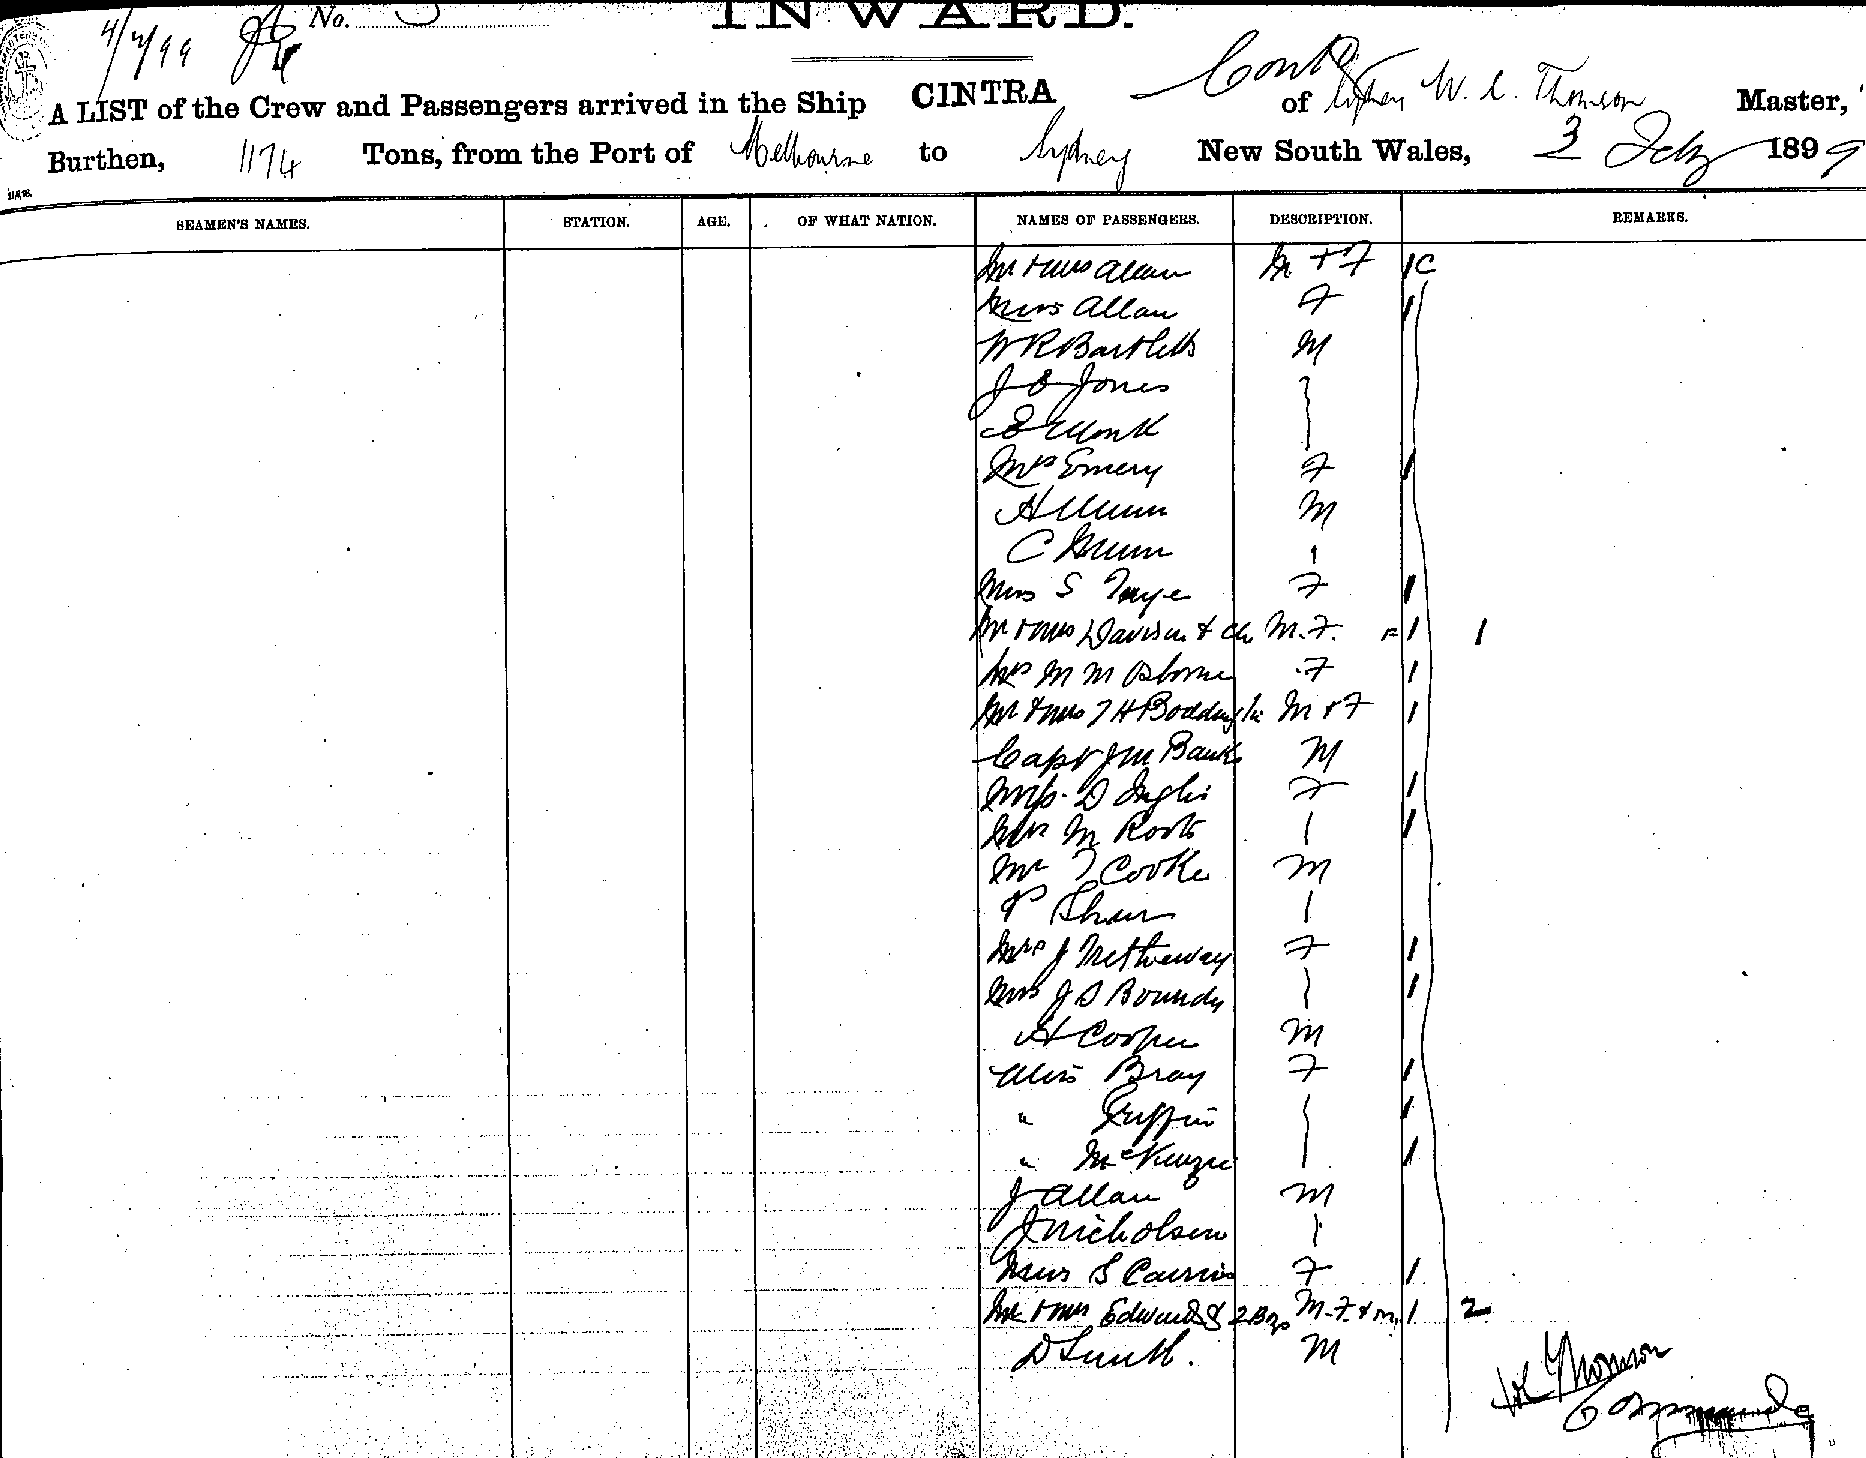 No.
INWARD.
4/2/99
Contd
A LIST of the Crew and Passengers arrived in the Ship CINTRA of Sydney W. C. Thomson Master,
Burthen, 1174 Tons, from the Port of Melbourne to Sydney New South Wales, 3 Feby 1899
SEAMEN'S NAMES. STATION. AGE. OF WHAT NATION. NAMES OF PASSENGERS. DESCRIPTION. REMARKS.
Mr & Mrs Allan M & F 1 C
Miss Allan F 1
W R Bartlett M
J E Jones
E Monk
Mrs Emery F 1
A Munn M
C Munn
Miss S Faye F 1
Mr & Mrs Davison & Ch M. F. F 1 1
Mrs M M Osborne F 1
Mr & Mrs T H Boddington M & F 1
Capt J M Banks M
Miss D Inglis F 1
Mrs M Roots 1
Mr T Cooke M
P Shaw
Mrs J Netheway F 1
Mrs J D Boundy 1
A Cooper M
Miss Bray F 1
" Griffin 1
" McKenzie 1
J Allan M
J Nicholson
Miss S Cairns F 1
Mr & Mrs Edwards & 2 Boys M. F. & M. 1 2
D Smith. M
W C Thomson
Commander